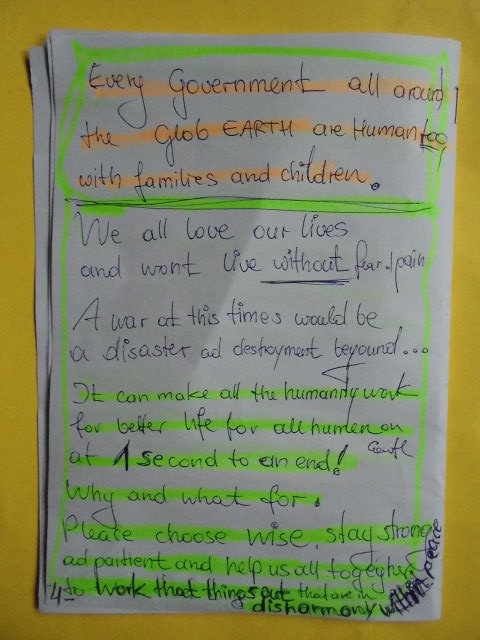 Every Government all around
the Glob EARTH are Human too
with families and children.
We all love our lives
and wont live without fear / pain
A war at this times would be
a disaster ad destroyment beyound...
It can make all the humanity work
for better life for all human on
earth
at 1 second to an end!
Why and what for.
Please choose wise, stay strong
ad patient and help us all togeyher
to work that things out that are in
disharmony within peace